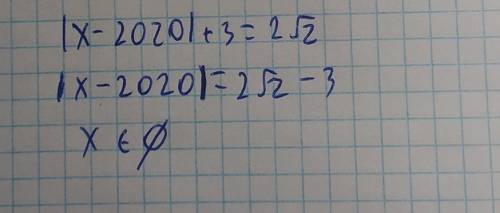 |x-2020|+3=2√2
|x-2020|=2√2-3
x ∈ ∅